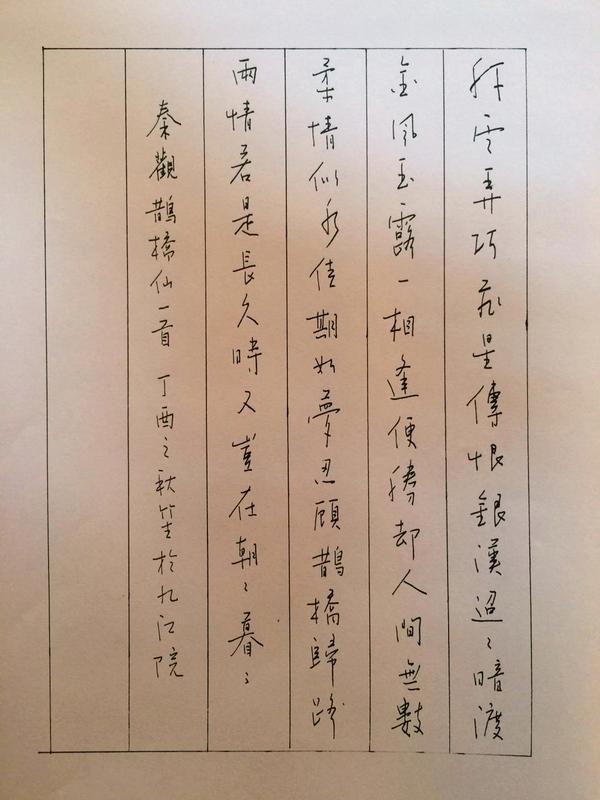 纤云弄巧飞星傳恨銀漢迢〻暗渡
金风玉露一相逢便勝却人间無數
柔情似水佳期如夢忍顾鵲橋歸路
兩情若是長久時又豈在朝〻暮〻
秦觀鵲橋仙一首丁酉之秋笙於九江院